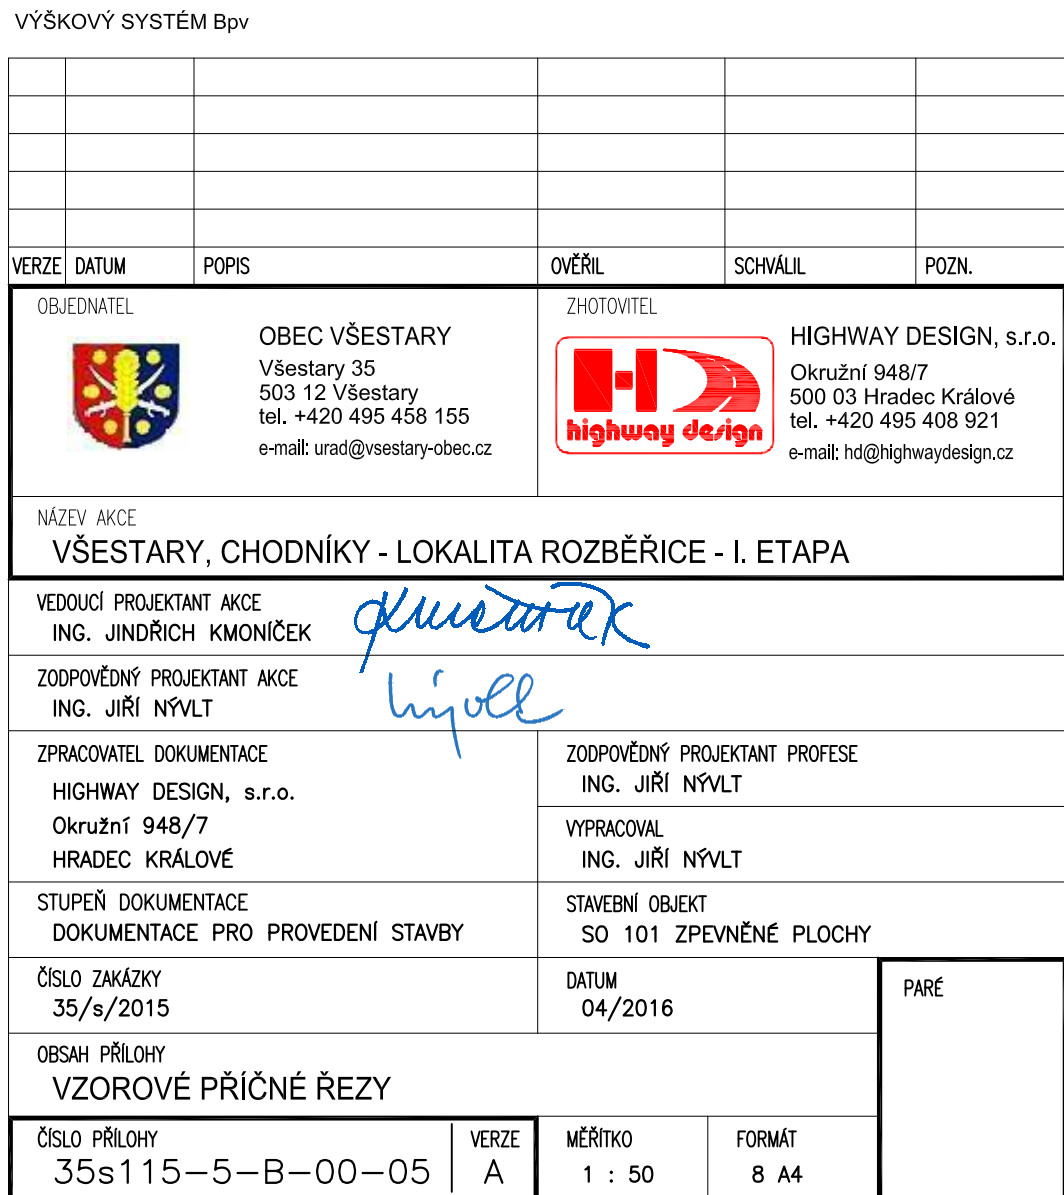 VÝŠKOVÝ SYSTÉM Bpv
VERZE DATUM POPIS OVĚŘIL SCHVÁLIL POZN.
OBJEDNATEL
OBEC VŠESTARY
Všestary 35
503 12 Všestary
tel. +420 495 458 155
e-mail: urad@vsestary-obec.cz
ZHOTOVITEL
highway design
HIGHWAY DESIGN, s.r.o.
Okružní 948/7
500 03 Hradec Králové
tel. +420 495 408 921
e-mail: hd@highwaydesign.cz
NÁZEV AKCE
VŠESTARY, CHODNÍKY - LOKALITA ROZBĚŘICE - I. ETAPA
VEDOUCÍ PROJEKTANT AKCE
ING. JINDŘICH KMONÍČEK
ZODPOVĚDNÝ PROJEKTANT AKCE
ING. JIŘÍ NÝVLT
ZPRACOVATEL DOKUMENTACE
HIGHWAY DESIGN, s.r.o.
Okružní 948/7
HRADEC KRÁLOVÉ
ZODPOVĚDNÝ PROJEKTANT PROFESE
ING. JIŘÍ NÝVLT
VYPRACOVAL
ING. JIŘÍ NÝVLT
STUPEŇ DOKUMENTACE
DOKUMENTACE PRO PROVEDENÍ STAVBY
STAVEBNÍ OBJEKT
SO 101 ZPEVNĚNÉ PLOCHY
ČÍSLO ZAKÁZKY
35/s/2015
DATUM
04/2016
PARÉ
OBSAH PŘÍLOHY
VZOROVÉ PŘÍČNÉ ŘEZY
ČÍSLO PŘÍLOHY
35s115-5-B-00-05
VERZE
A
MĚŘÍTKO
1 : 50
FORMÁT
8 A4